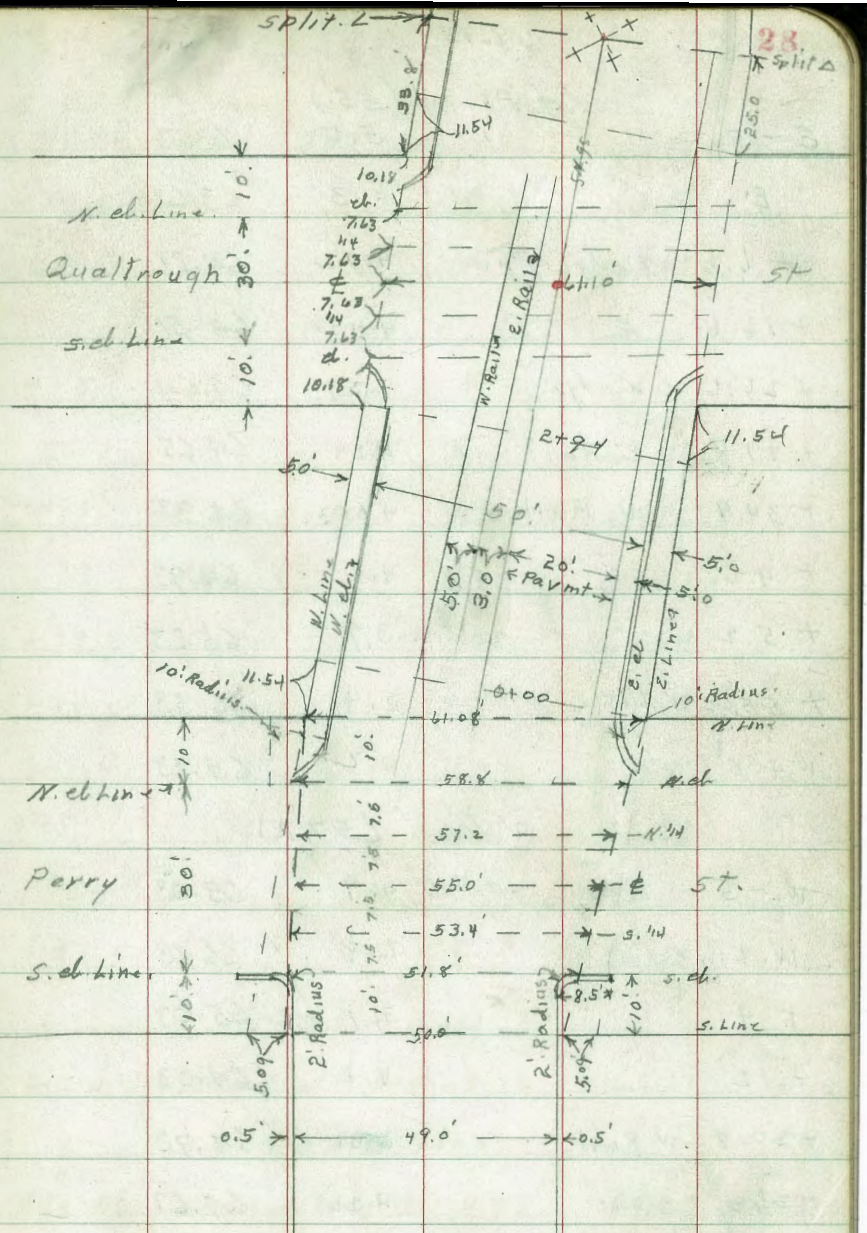 Split. L
28
Split Δ
33.2'
25.0
11.54
10.'
10.18
cb.
N. cb. Line.
7.63
1/4
7.63
Qualtrough
30.'
℄
61.10'
St
7.63
1/4
S. cb Line
7.63
cb.
10.'
10.18
W. Rail
E. Rail
2+94
11.54
5.0'
50.'
5.0'
3.0
20.'
Pavmt
5.'0
5.'0
W. Line
W. cb.
E. cb
E. Line
10.' Radius.
11.54
0+00
10.' Radius.
61.08'
N. Line
10'
10.'
N. cb Line
58.8'
N. cb
7.5'
57.2
N. 1/4
7.5'
Perry
30.'
55.0'
℄
St.
7.5'
53.4'
S. 1/4
7.5
S. cb Line.
51.8'
S. cb.
8.5'
10.'
10.'
10.'
50.0'
S. Line
5.09'
2' Radius
2' Radius
5.09'
0.5'
49.0'
0.5'